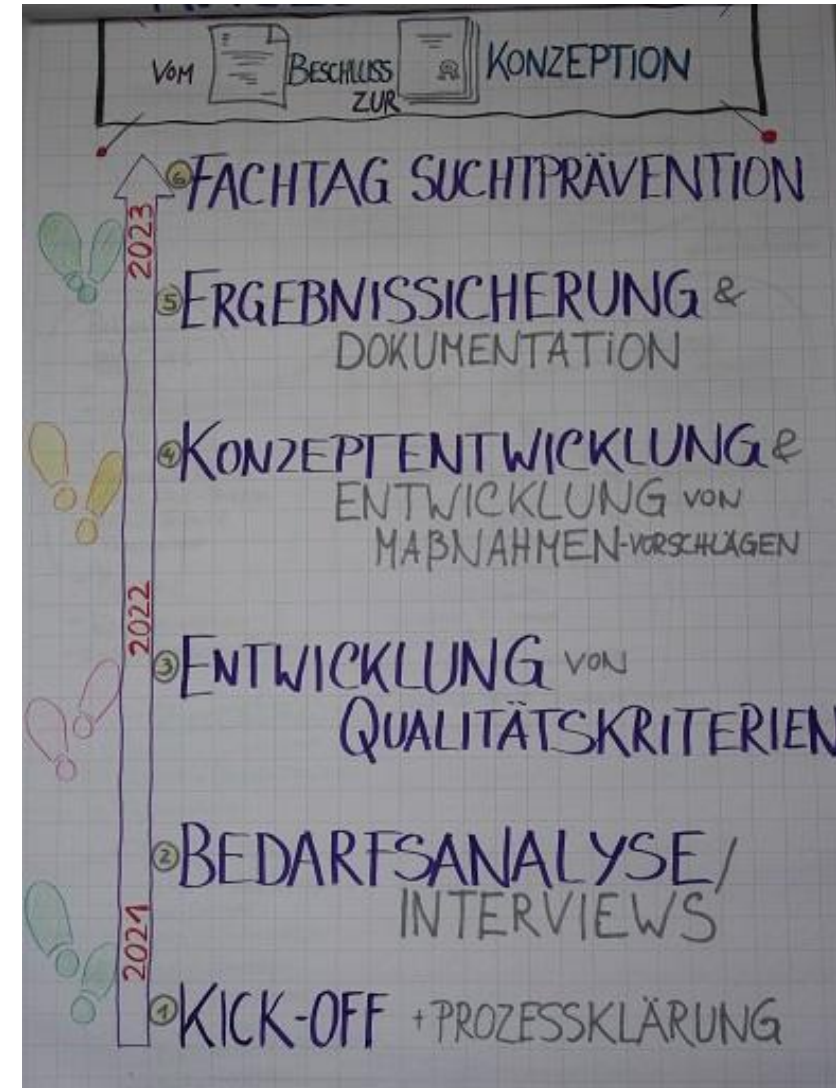 VOM BESCHLUSS KONZEPTION
ZUR
⑥ FACHTAG SUCHTPRÄVENTION
2023
⑤ ERGEBNISSICHERUNG &
DOKUMENTATION
④ KONZEPTENTWICKLUNG &
ENTWICKLUNG VON
MAßNAHMEN-VORSCHLÄGEN
2022
③ ENTWICKLUNG VON
QUALITÄTSKRITERIEN
② BEDARFSANALYSE/
INTERVIEWS
2021
① KICK-OFF + PROZESSKLÄRUNG